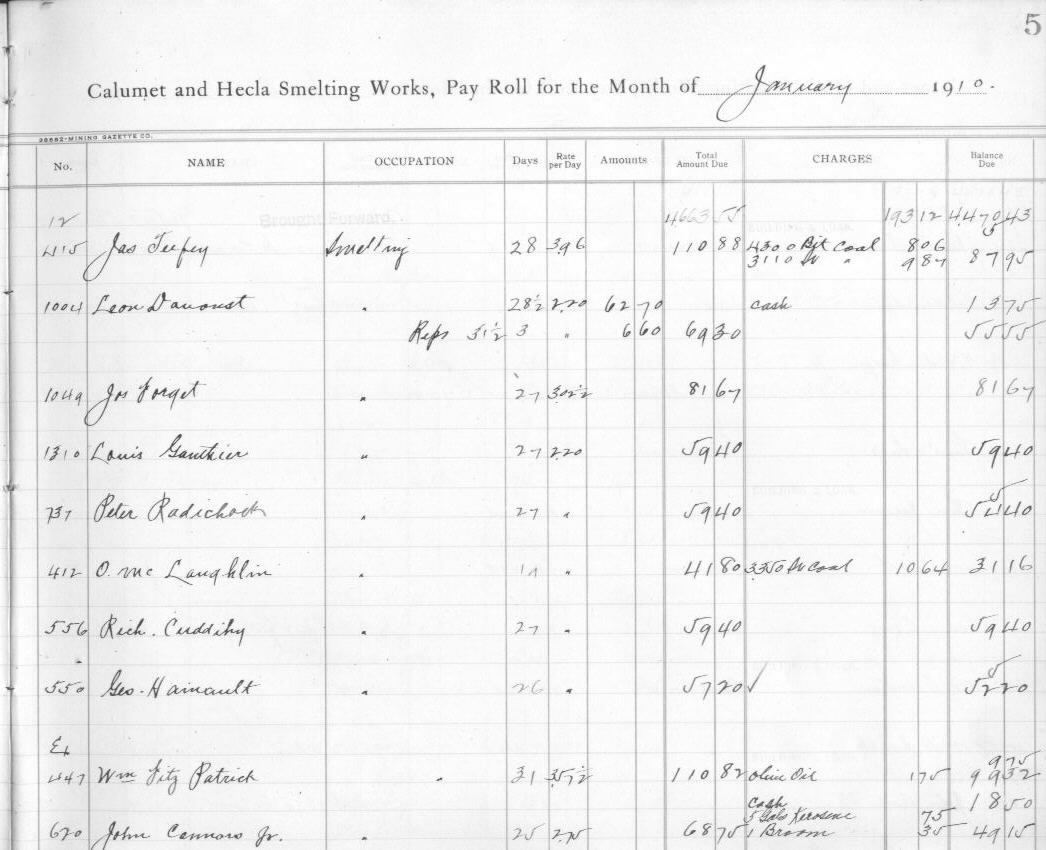 5
Calumet and Hecla Smelting Works, Pay Roll for the Month of January 1910.
38682-MINING GAZETTE CO.
No. NAME OCCUPATION Days Rate per Day Amounts Total Amount Due CHARGES Balance Due
12 Brought Forward. 4663 55 193 12 4470 43
415 Jas Smelting 28 3 96 110 88 4300 Bit Coal 8 06 5
3110 " 9 87 87 95
1004 Leon Davoust " 28½ 2.20 62 70 cash 13 75
Reps 31½ 3 " 6 60 69 30 55 55
1049 Jos Forget " 27 3 02½ 81 67 81 67
1310 Louis Gauthier " 27 2 20 59 40 59 40
737 Peter Radichoch " 27 " 59 40 5
54 40
412 O. Mc Laughlin " 19 " 41 80 3350 Coal 10 64 31 16
556 Rich. Cuddihy " 27 " 59 40 59 40
550 Geo. Hainault " 26 " 57 20 ✓ 5
52 20
Ex 9 75
447 Wm Fitz Patrick " 31 3 57½ 110 82 olive Oil 1 75 99 32
Cash 18 50
5 Gals Kerosene 75
620 John Connors Jr. " 25 2 75 68 75 1 Broom 35 49 15